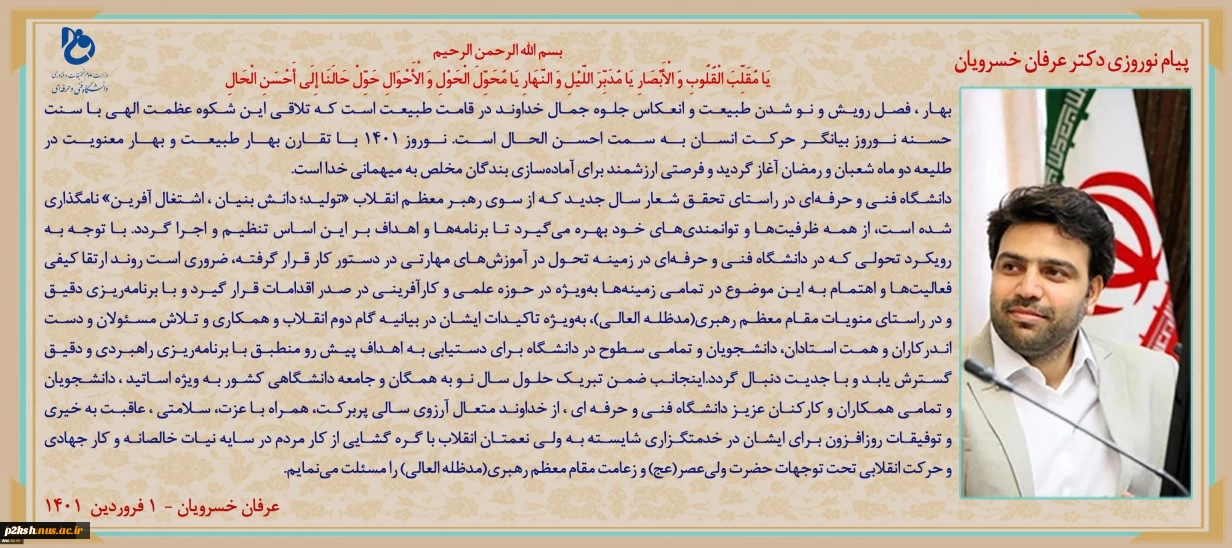 پیام نوروزی دکتر عرفان خسرویان
وزارت علوم، تحقیقات و فناوری
دانشگاه فنی و حرفه‌ای
بسم الله الرحمن الرحیم
یَا مُقَلِّبَ الْقُلُوبِ وَ الْأَبْصَارِ یَا مُدَبِّرَ اللَّیْلِ وَ النَّهَارِ یَا مُحَوِّلَ الْحَوْلِ وَ الْأَحْوَالِ حَوِّلْ حَالَنَا إِلَی أَحْسَنِ الْحَالِ
بهار ، فصل رویش و نو شدن طبیعت و انعکاس جلوه جمال خداوند در قامت طبیعت است که تلاقی این شکوه عظمت الهی با سنت
حسنه نوروز بیانگر حرکت انسان به سمت احسن الحال است. نوروز ۱۴۰۱ با تقارن بهار طبیعت و بهار معنویت در
طلیعه دو ماه شعبان و رمضان آغاز گردید و فرصتی ارزشمند برای آماده‌سازی بندگان مخلص به میهمانی خدا است.
دانشگاه فنی و حرفه‌ای در راستای تحقق شعار سال جدید که از سوی رهبر معظم انقلاب «تولید؛ دانش بنیان ، اشتغال آفرین» نامگذاری
شده است، از همه ظرفیت‌ها و توانمندی‌های خود بهره می‌گیرد تا برنامه‌ها و اهداف بر این اساس تنظیم و اجرا گردد. با توجه به
رویکرد تحولی که در دانشگاه فنی و حرفه‌ای در زمینه تحول در آموزش‌های مهارتی در دستور کار قرار گرفته، ضروری است روند ارتقا کیفی
فعالیت‌ها و اهتمام به این موضوع در تمامی زمینه‌ها به‌ویژه در حوزه علمی و کارآفرینی در صدر اقدامات قرار گیرد و با برنامه‌ریزی دقیق
و در راستای منویات مقام معظم رهبری(مدظله العالی)، به‌ویژه تاکیدات ایشان در بیانیه گام دوم انقلاب و همکاری و تلاش مسئولان و دست
اندرکاران و همت استادان، دانشجویان و تمامی سطوح در دانشگاه برای دستیابی به اهداف پیش رو منطبق با برنامه‌ریزی راهبردی و دقیق
گسترش یابد و با جدیت دنبال گردد.اینجانب ضمن تبریک حلول سال نو به همگان و جامعه دانشگاهی کشور به ویژه اساتید ، دانشجویان
و تمامی همکاران و کارکنان عزیز دانشگاه فنی و حرفه ای ، از خداوند متعال آرزوی سالی پربرکت، همراه با عزت، سلامتی ، عاقبت به خیری
و توفیقات روزافزون برای ایشان در خدمتگزاری شایسته به ولی نعمتان انقلاب با گره گشایی از کار مردم در سایه نیات خالصانه و کار جهادی
و حرکت انقلابی تحت توجهات حضرت ولی‌عصر(عج) و زعامت مقام معظم رهبری(مدظله العالی) را مسئلت می‌نمایم.
عرفان خسرویان - ۱ فروردین ۱۴۰۱
p2ksh.nus.ac.ir